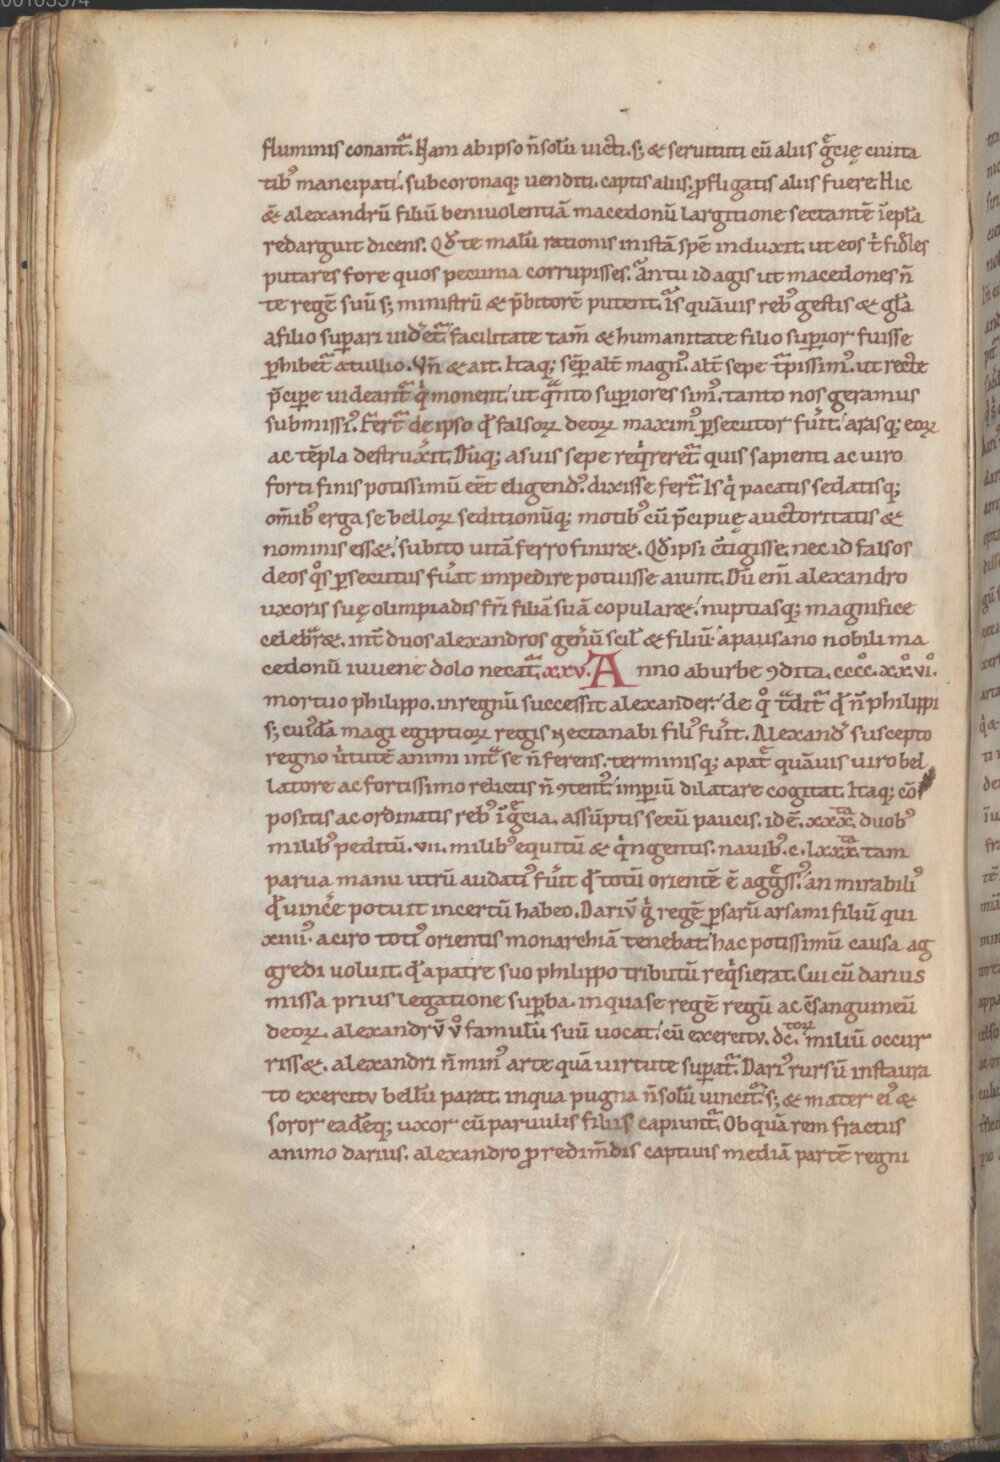 00103374
fluminis conant᷑. Nam ab ipso n̄ solū victi. s; & servituti cū aliis gͣcię civita
tibꝰ mancipati. sub coronaq; venditi. captis aliis. ꝓfligatis aliis fuere. Hic
&̄ alexandrū filiū benivolentiā macedonū largitione sectantē ī epl̄a
redarguit dicens. Qđ te malū rationis in istā spē induxit. ut eos t̉ fid̄les
putares fore quos pecunia corrupisses. an tu id agis ut macedones n̄
te regē suū s; ministrū & p̄bitorē putent. Is quāvis rebꝰ gestis & gl̄a
a filio suꝑari vid̉et᷑. facilitate tam̄ & humanitate filio suꝑior fuisse
ꝑhibet᷑ a tullio. Vn̄ & ait. Itaq; sēꝑ alt̄ magnꝰ. alt̄ sepe t᷑pissimꝰ. ut recte
p̄cipe videant᷑ qͥ monent. ut qͣnto suꝑiores simꝰ. tanto nos geramus
submissiꝰ. Fert᷑ de ipso qđ falsoꝝ deoꝝ maximꝰ ꝑsecutor fu̓it. arasq; eoꝝ
ac tēpla destrux̓it. Deniq; a suis sepe reqͥreret᷑ quis sapienti ac viro
forti finis potissimū eēt eligendꝰ. dixisse fert᷑. Is qͥ pacatis sedatisq;
om̄ibꝰ erga se belloꝝ seditionūq; motibꝰ cū p̄cipuę auctoritatis &
nominis ess&. subito vitā ferro finir&. Qđ ipsi ꝯtigisse. nec id falsos
deos qͦs ꝑsecutus fu̓at impedire potuisse aiunt. Dū eni̅ alexandro
uxoris suę olimpiadis fr̄i filiā suā copular&. nuptiasq; magnifice
celebrar&. int̄ duos alexandros gen̓ū scil̄ & filiū. a pausano nobili ma
cedonū iuvene dolo necat᷑. xxv. Anno ab urbe ꝯdita. cccͦc. xxͦ. viͦ.
mortuo philippo. in regnū successit alexander. de qͦ t᷑dit᷑ qđ n̄ philippi
s; cuiꝰdā magi egiptioꝝ regis nectanabi filiꝰ fu̓it. Alexand̓ suscepto
regno v̓tutē animi intͣ se n̄ ferens. terminisq; a patͤ quāvis viro bel
latore ac fortissimo relictis n̄ ꝯtentꝰ. imperiū dilatare cogitat. Itaq; cō
positis ac ordinatis rebꝰ ī gͤcia. assūptis secū paucis. id ē. xxxͭᵃ. duobꝰ
milibꝰ peditū. vii. milibꝰ equitū & qͥngentis. navibꝰ. c. lxxxͭᵃ. tam
parva manu utrū audatiꝰ fu̓it qđ totū orientē ē aggͤssꝰ. an mirabiliꝰ
qđ vinc̓e potuit incertū habeo. Dariū g̊ regē ꝑsarū arsami filiū qui
xiiiiꝰ. a ciro totiꝰ orientis monarchiā tenebat. hac potissimū causa ag
gredi voluit. qđ a patre suo philippo tributū reqͥsierat. Cui cū darius
missa prius legatione suꝑba. in qua se regē regū ac ꝯsanguineū
deoꝝ. alexandrū v̊ famulū suū vocat. cū exercitu. dc.ᵗᵒʳ miliū occur
riss&. alexandri n̄ minꝰ arte quā virtute suꝑat᷑. Dariꝰ rursū instaura
to exercitu bellū parat. in qua pugna n̄ solū vincit᷑. s; & mater eiꝰ &
soror eadēq; uxor cū parvulis filiis capiunt᷑. Ob quā rem fractus
animo darius. alexandro ꝓ redim̄dis captivis mediā partē regni